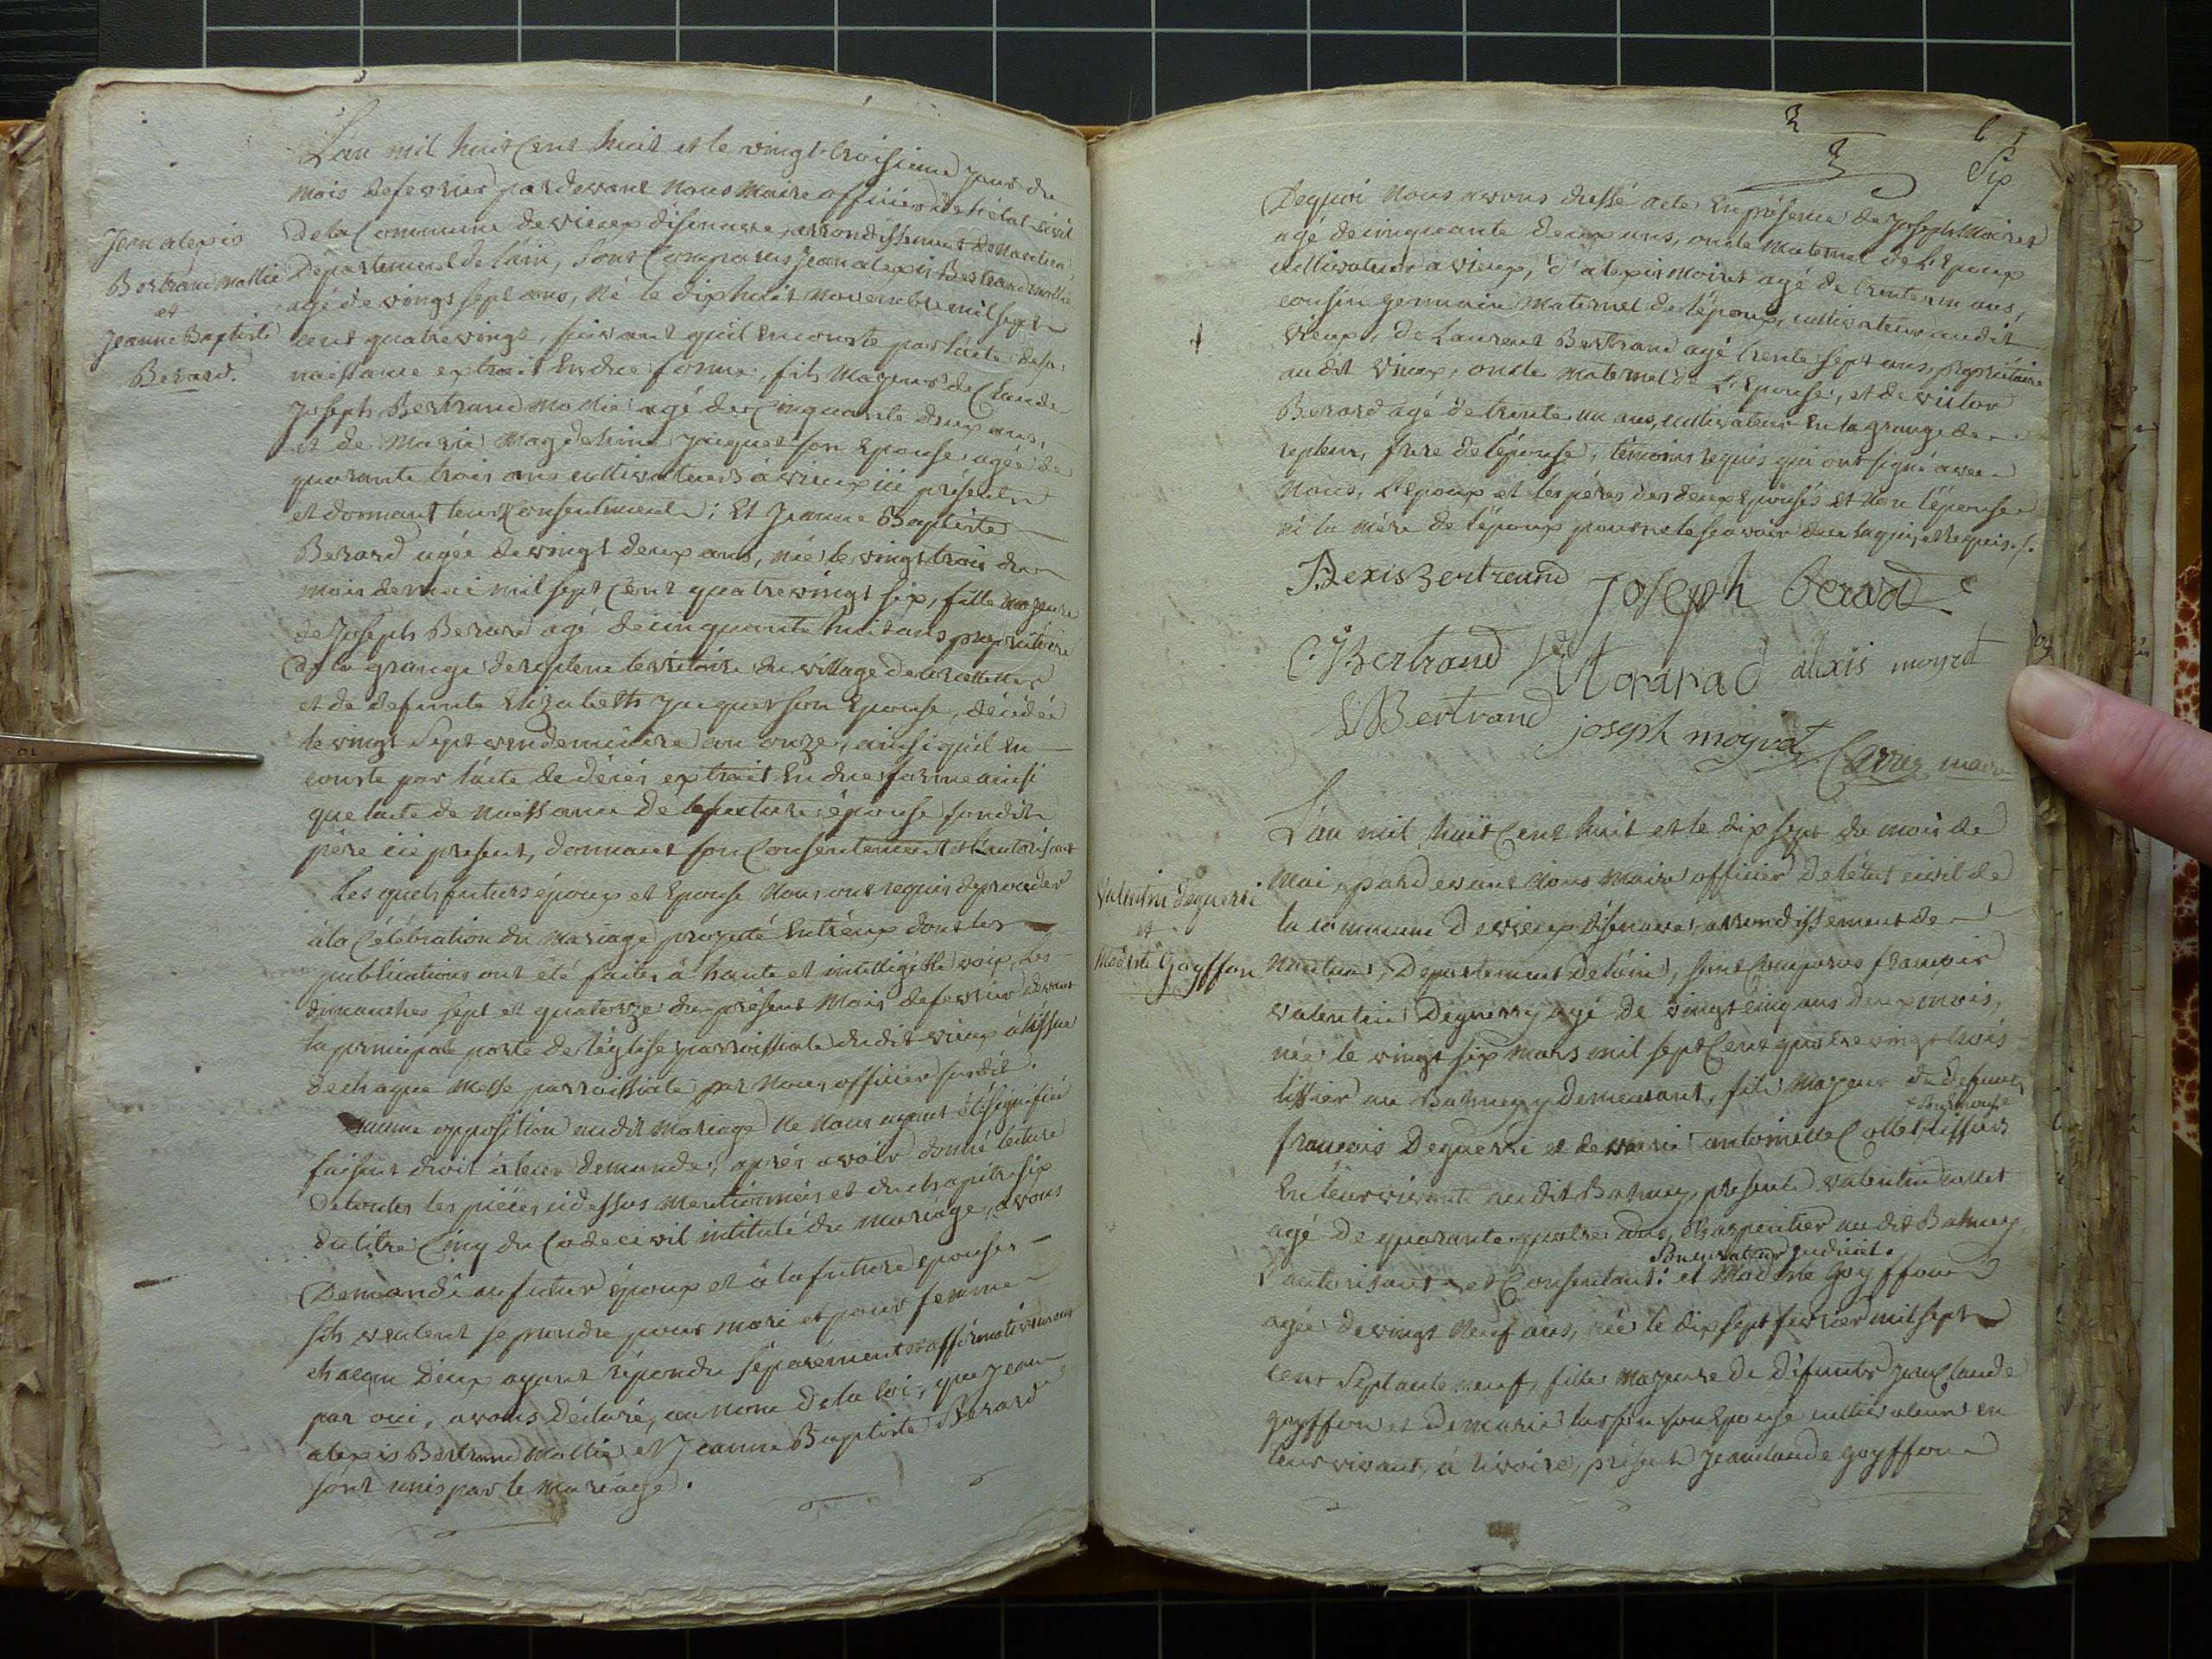 L'an mil huit cent huit et le vingt troisieme jour du
mois de fevrier pardevant nous maire officier de l'état civil
de la Commune de vieux disenave, arrondissement de Nantua,
Jean alexis
Bertrand mollie
et
Jeanne Baptiste
Berard.
Département de l'ain, sont Comparus Jean alexis Bertrand mollie
agé de vingt sept ans, né le dix huit novembre mil sept
cent quatrevingt, suivant quil en conste par l'acte de sa
naissance extrait en due forme, fils majeur de Claude
Joseph Bertrand mollie agé de Cinquante deux ans,
et de Marie Magdeleine Jacquet son Epouse agée de
quarante trois ans cultivateurs à vieux ici présents
et donnant leur Consentement; Et Jeanne Baptiste
Berard agée de vingt deux ans, née le vingt trois du
mois de mai mil sept Cent quatrevingt six, fille majeure
de Joseph Berard agé de cinquante huit ans propriétaire
de la grange de territoire du village de
et de defunte Elizabeth Jacquet son Epouse, décédée
le vingt Sept vendemiaire an onze, ainsi qu'il en
conste par l'acte de décés extrait en due forme ainsi
que l'acte de naissance de la future épouse sondit
père ici present, donnant son Consentement et l'autorisant
Les quels futurs époux et Epouse nous ont requis de proceder
à la Célébration du mariage projeté entr'eux dont les
publications ont été faites à haute et intelligible voix, les
dimanches sept et quatorze du présent mois de fevrier devant
la principale porte de l'église parroissiale dudit vieux à l'issue
de chaque messe parroissiale par nous officier susdit.
aucune opposition audit mariage ne nous ayant été signifiée
faisant droit à leur demande, aprés avoir donné lecture
de toutes les pièces cidessus mentionnées et du chapitre six
du titre Cinq du Code civil intitulé du mariage, avons
Demandé au futur époux et à la future epouse
s'ils veulent se prendre pour mari et pour femme
chacun d'eux ayant répondu séparément et affirmativement
par oui, avons déclaré, au nom de la loi, que Jean
alexis Bertrand Mollie et Jeanne Baptiste Berard
sont unis par le mariage.
Six
Dequoi nous avons dressé acte en présence de Joseph Moiret
agé de cinquante deux ans, oncle maternel de l'Epoux
cultivateur a vieux, d'alexis moiret agé de trente un ans,
cousin germain maternel de l'époux, cultivateur audit
vieux, de Laurent Bertrand agé trente sept ans, propriétaire
audit vieux, oncle maternel de l'Epouse, et de victor
Berard agé de trente un ans, cultivateur en la grange de
frere de l'épouse, témoins requis qui ont signé avec
nous, l'Epoux et les péres des deux Epousés et non l'épouse
ni la mère de l'époux pour ne le sçavoir de ce enquis et requis.
Alexis Bertrand Joseph berard
C Bertrand alexis moyret
L Bertrand joseph moyret Carrier maire
L'an mil huit Cent huit et le dix sept du mois de
Valentin deguerri
et
Modeste Goyffon
Mai, pardevant nous maire officier de l'état civil de
la commune de vieux disenave, arrondissement de
nantua, Département de l'ain, sont Comparus françois
valentin Deguerry agé de vingt cinq ans deux mois,
née le vingt six mars mil sept Cent quatre vingt trois
tissier au Balmey y demeurant, fils majeur de defunts
son Epouse
françois Deguerri et de marie antoinette Collet tissiers
en leur vivant audit Balmey, present valentin Collet
agé de quarante quatre ans, charpentier audit Balmey,
Son curateur judiciel.
L'autorisant et Consentant: et Modeste Goyffon
agée de vingt neuf ans, née le dix sept fevrier mil sept
cent Septante neuf, fille majeure de défunts Jean Claude
goyffon et de marie son Epouse cultivateurs en
leur vivant, à rivoire, présent Jean Claude goyffon